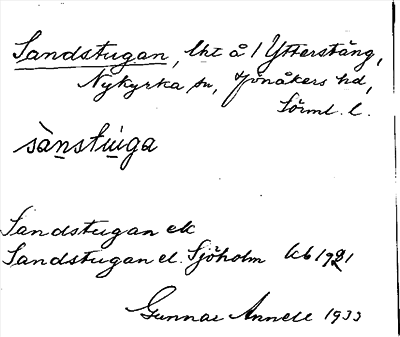 Sandstugan, lht å / Ytterstång,
Nykyrka sn, Jönåkers hd,
Sörml. l.
sànstu̇ga
Sandstugan ek
Sandstugan el. Sjöholm kb 1921
Gunnar Annell 1933